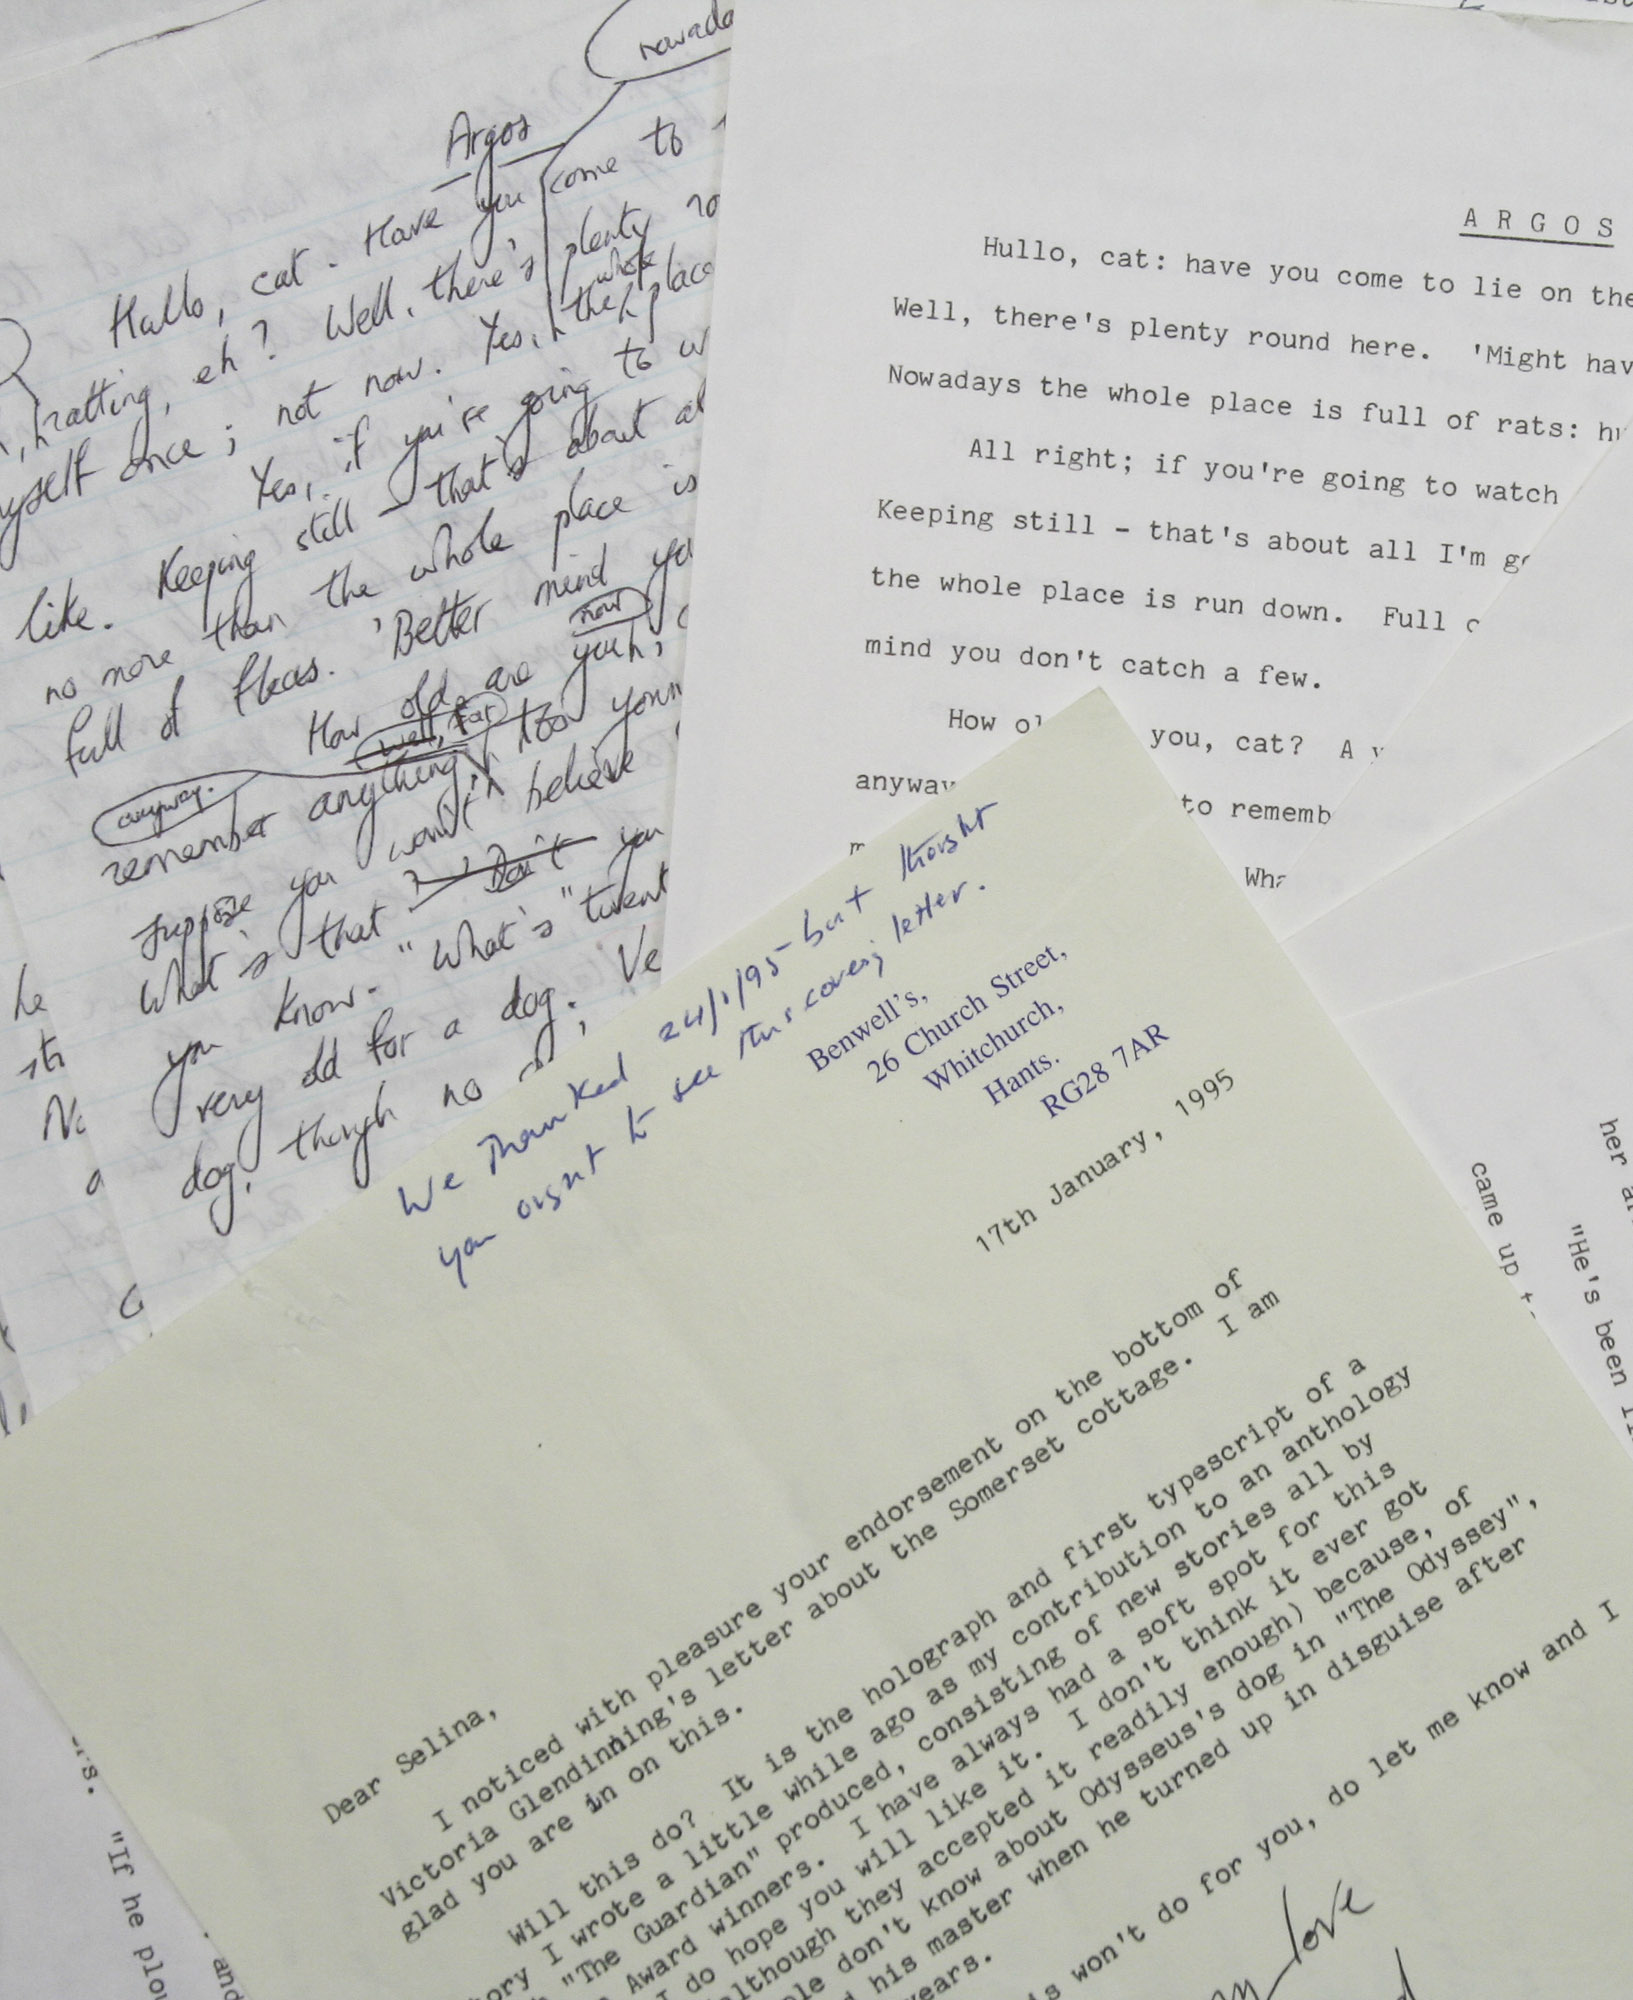 nowada
Argos
Hullo, cat. Have you come to
ratting, eh? Well, there's plenty ro
myself once; not now. Yes, the whole place
Yes, if you're going to w
like. Keeping still – that's about al
no more than the whole place is
full of fleas. 'Better mind yo
now
How old are
well, far
anyway.
remember anything, too youn
suppose you won't believe
What's that Don't you
you know. "What's "twent
very old for a dog. Ve
dog, though no
he
sth
a
A R G O S
Hullo, cat: have you come to lie on the
Well, there's plenty round here. 'Might hav
Nowadays the whole place is full of rats:
All right; if you're going to watch
Keeping still – that's about all I'm
the whole place is run down. Full
mind you don't catch a few.
How ol you, cat? A
anyway to rememb
Wha
We Thanked 24/1/95 – but thought
you ought to see this covering letter.
Benwell's,
26 Church Street,
Whitchurch,
Hants.
RG28 7AR
17th January, 1995
Dear Selina,
I noticed with pleasure your endorsement on the bottom of
Victoria Glendinning's letter about the Somerset cottage. I am
glad you are in on this.
Will this do? It is the holograph and first typescript of a
ory I wrote a little while ago as my contribution to an anthology
"The Guardian" produced, consisting of new stories all by
Award winners. I have always had a soft spot for this
I do hope you will like it. I don't think it ever got
although they accepted it readily enough) because, of
ple don't know about Odysseus's dog in "The Odyssey",
d his master when he turned up in disguise after
years.
is won't do for you, do let me know and I
love
her
came up
"He's been
rs. "If he plou
and